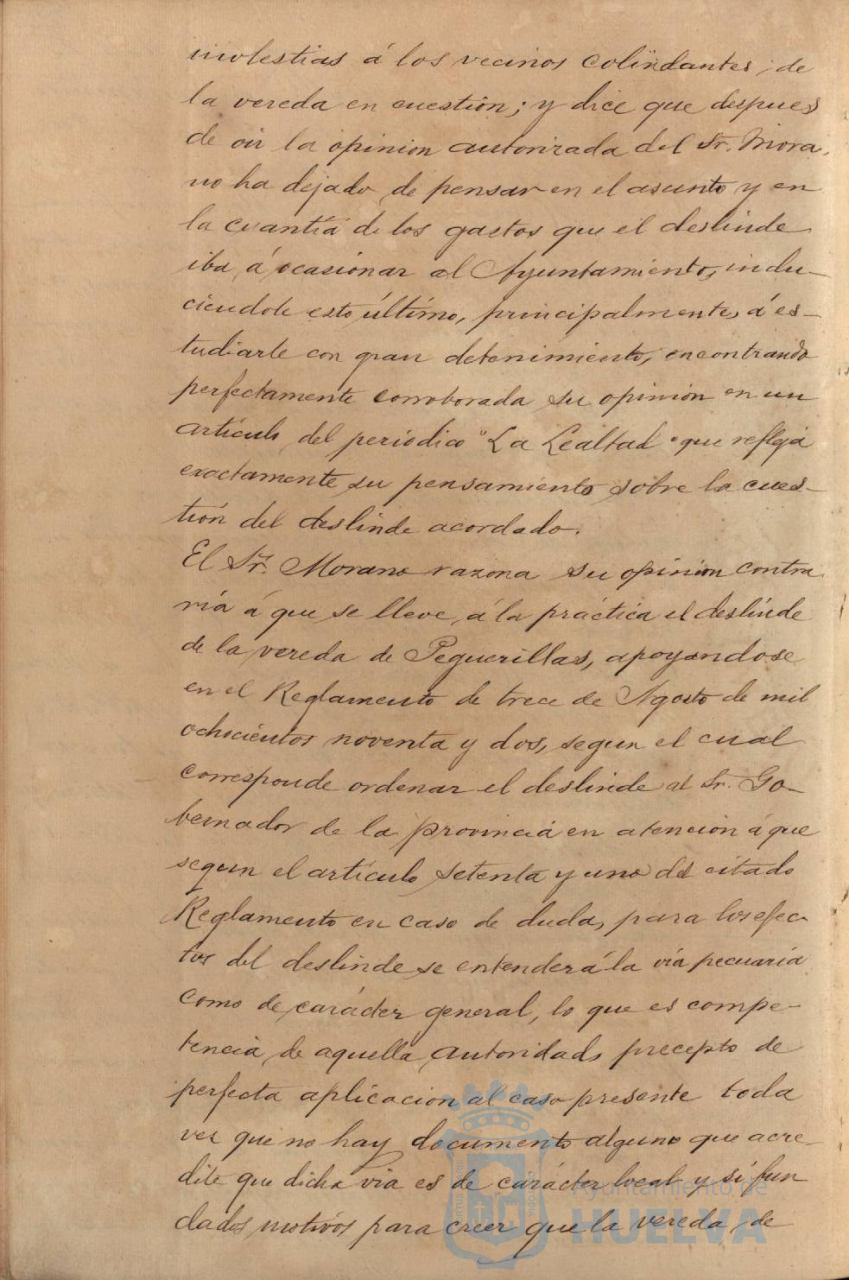 molestias á los vecinos colindantes, de
la vereda en cuestión; y dice que despues
de oir la opinion autorizada del Sr. Mora,
no ha dejado de pensar en el asunto y en
la cuantía de los gastos que el deslinde
iba á ocasionar al Ayuntamiento, indu-
ciendole esto último, principalmente, á es-
tudiarle con gran detenimiento, encontrando
perfectamente corroborada su opinión en un
artículo del periódico "La Lealtad" que refleja
exactamente su pensamiento sobre la cues-
tión del deslinde acordado.
El Sr. Morano razona su opinion contra-
ria á que se lleve á la práctica el deslinde
de la vereda de Peguerillas, apoyandose
en el Reglamento de trece de Agosto de mil
ochocientos noventa y dos, segun el cual
corresponde ordenar el deslinde al Sr. Go-
bernador de la provincia en atención á que
segun el artículo setenta y uno del citado
Reglamento en caso de duda, para los efec-
tos del deslinde se entenderá la via pecuaria
como de carácter general, lo que es compe-
tencia de aquella autoridad, precepto de
perfecta aplicacion al caso presente toda
vez que no hay documento alguno que acre-
dite que dicha via es de carácter local y si fun
dados motivos para creer que la vereda de
Ayuntamiento de
HUELVA